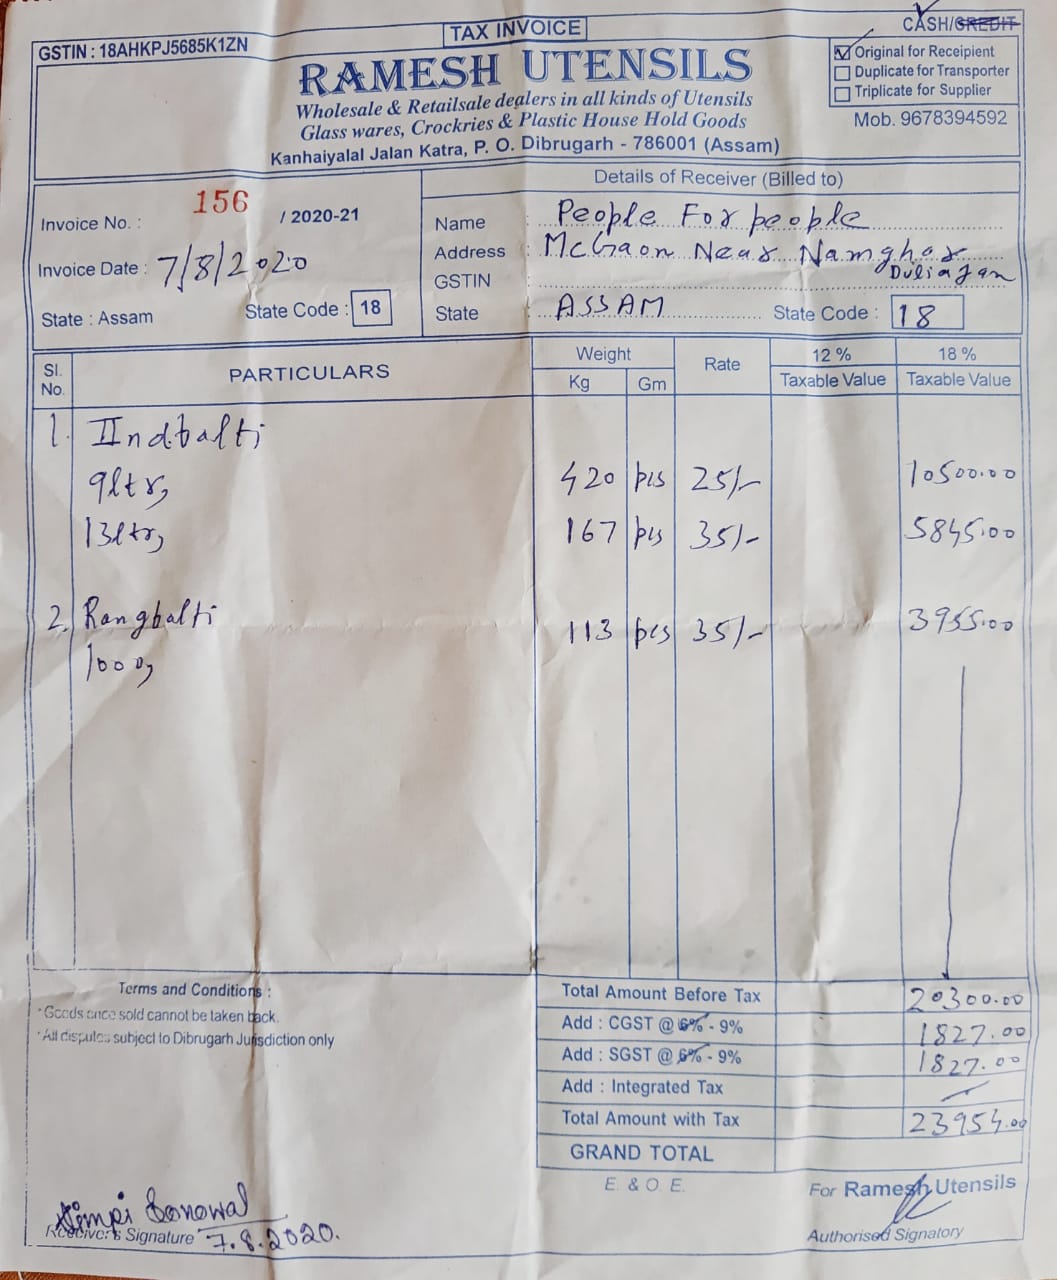 TAX INVOICE
CASH/CREDIT
GSTIN : 18AHKPJ5685K1ZN
Original for Receipient
Duplicate for Transporter
Triplicate for Supplier
RAMESH UTENSILS
Wholesale & Retailsale dealers in all kinds of Utensils
Glass wares, Crockries & Plastic House Hold Goods
Mob. 9678394592
Kanhaiyalal Jalan Katra, P. O. Dibrugarh - 786001 (Assam)
Invoice No. : 156 / 2020-21
Invoice Date : 7/8/2020
State : Assam State Code : 18
Details of Receiver (Billed to)
Name : People For people
Address : McGaon Near Namghar
Duliajan
GSTIN :
State : ASSAM State Code : 18
Sl. No. PARTICULARS Weight Kg Gm Rate 12 % Taxable Value 18 % Taxable Value
1. IIndbalti
9ltr, 420 pcs 25/- 10500.00
13ltr, 167 pcs 35/- 5845.00
2. Rangbalti 113 pcs 35/- 3955.00
1000,
Terms and Conditions :
*Goods once sold cannot be taken back.
*All disputes subject to Dibrugarh Jurisdiction only
Total Amount Before Tax 20300.00
Add : CGST @ 6% - 9% 1827.00
Add : SGST @ 6% - 9% 1827.00
Add : Integrated Tax
Total Amount with Tax 23954.00
GRAND TOTAL
E. & O. E.
For Ramesh Utensils
Authorised Signatory
Simpi Sonowal
Receiver's Signature 7.8.2020.